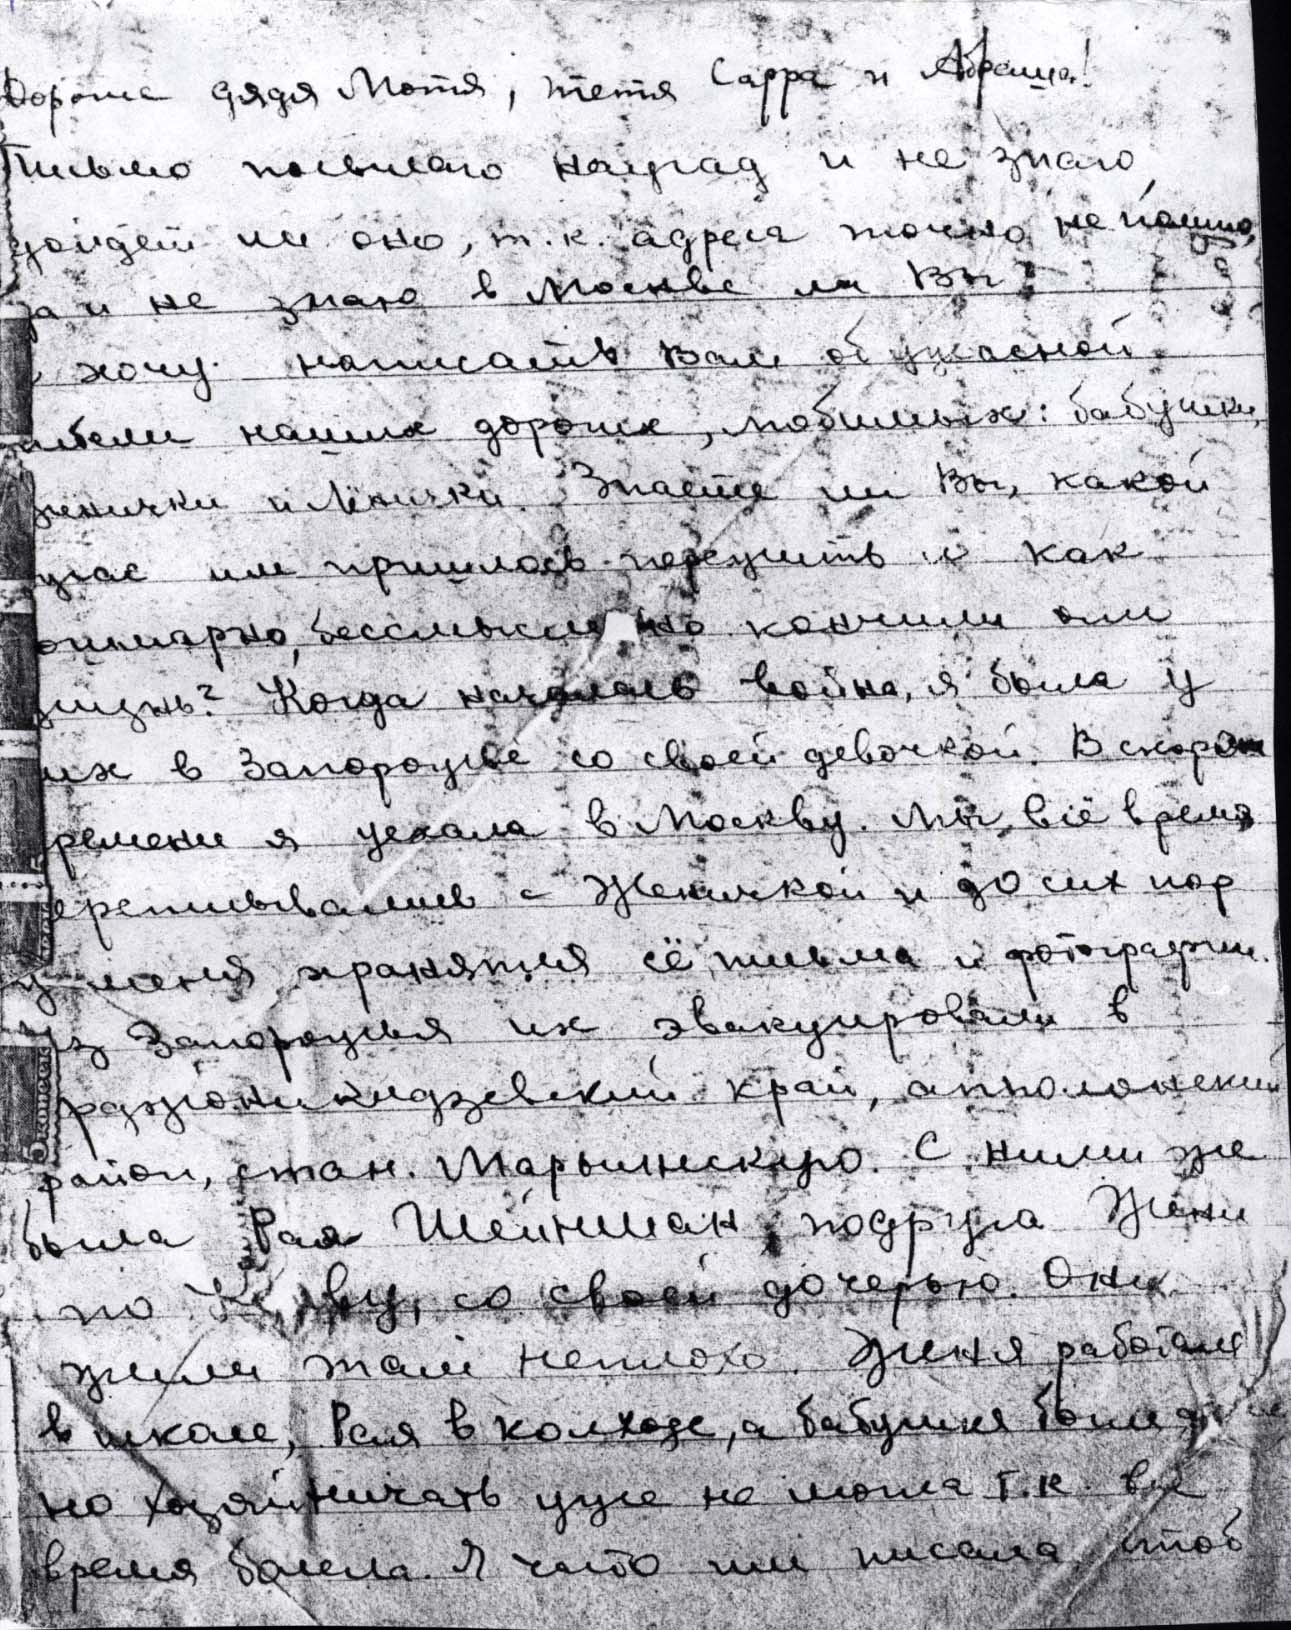 Дорогие дядя Мотя, тетя Сарра и Абраша!
Письмо посылаю наугад и не знаю
дойдет ли оно, т.к. адреса точно не помню,
да и не знаю в Москве ли Вы?
хочу написать Вам об ужасной
гибели наших дорогих, любимых: бабушки,
Женички и Лёнички. Знаете ли Вы, какой
ужас им пришлось пережить и как
кошмарно, бессмысленно кончили они
жизнь? Когда началась война, я была у
них в Запорожье со своей девочкой. В скором
времени я уехала в Москву. Мы всё время
переписывались с Женичкой и до сих пор
у меня хранятся её письма и фотографии.
Из Запорожья их эвакуировали в
Орджоникидзевский край, апполонский
район, стан. Марьинскую. С ними же
была Рая Шейнман, подруга Жени
по Киеву, со своей дочерью. Они
жили там неплохо. Женя работала
в школе, Рая в колхозе, а бабушка
но хозяйничать уже не могла т.к. всё
время болела. Я часто им писала, чтоб